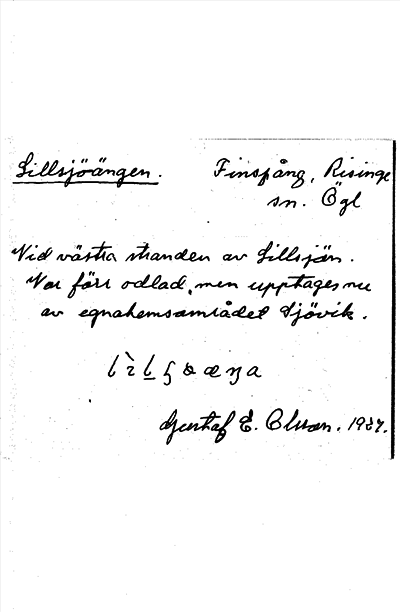 Lillsjöängen.
Finspång, Risinge
sn. Ögl
Vid västra stranden av Lillsjön.
Var förr odlad, men upptages nu
av egnahemsområdet Sjövik.
Gustaf E. Olsson. 1937.